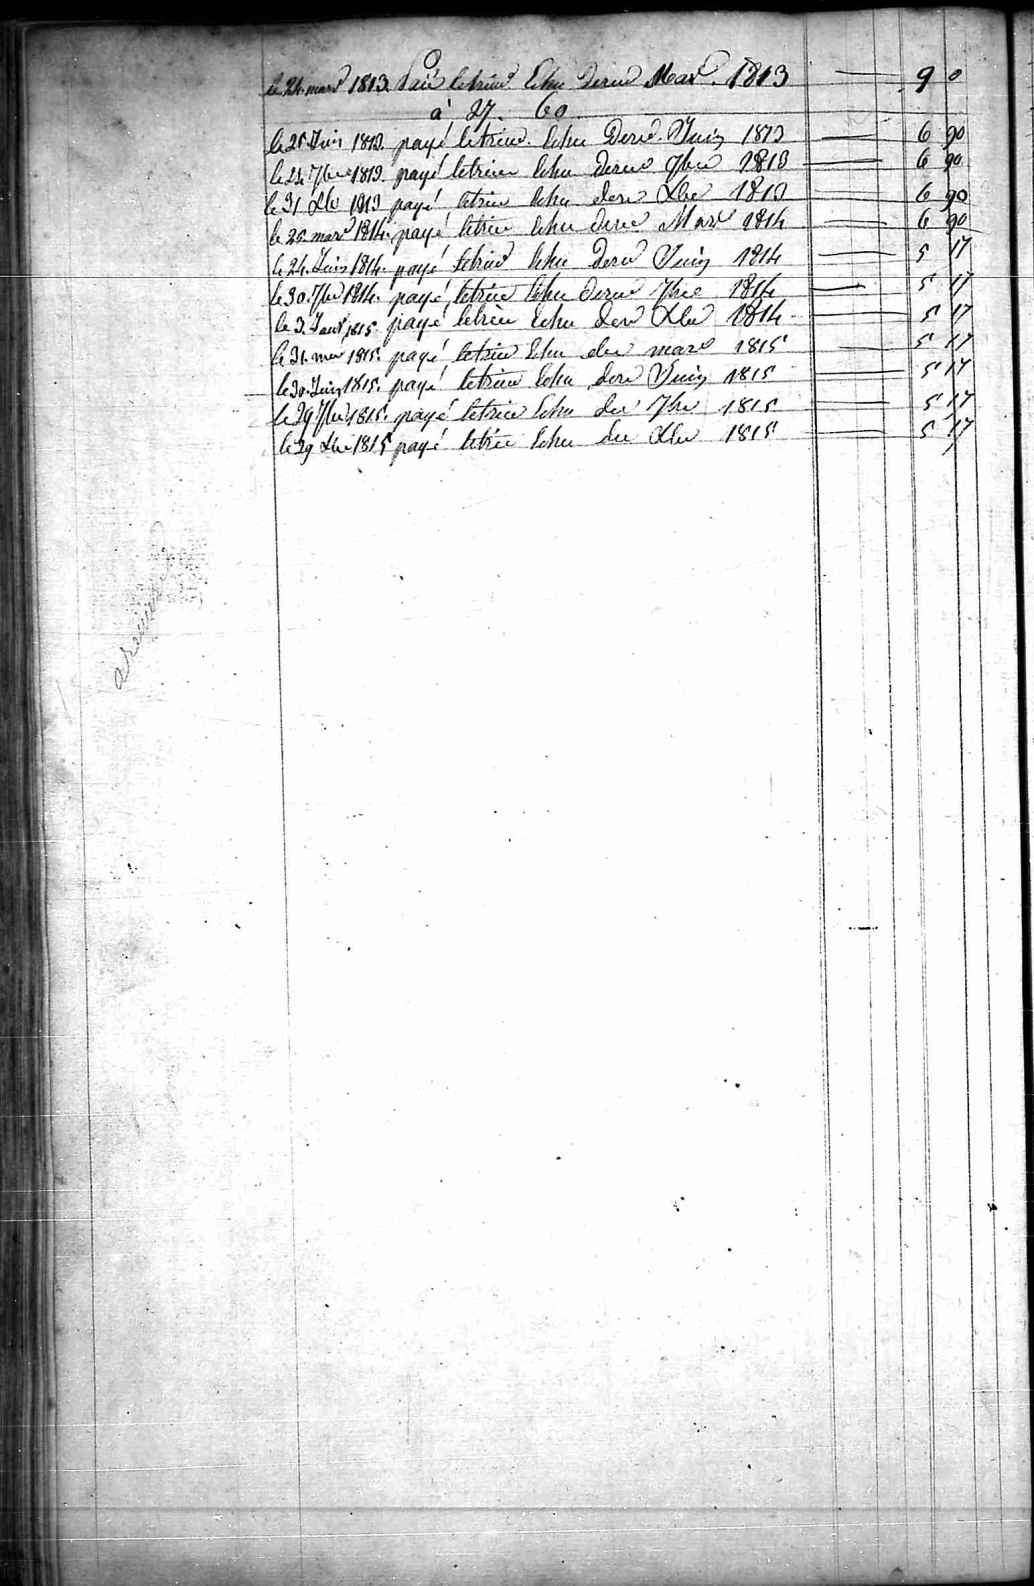 le 24. mars 1813. Paié letrim Echu Derne Mars. 1813 9 0
à 27. 60.
le 25 Juin 1813. payé letrim. Echu Derne. Juin 1813 6 90
le 24. 7bre 1813. payé letrim Echu derne 7bre 1813 6 90
le 31 Xbre 1813 payé letrim Echu derne Xbre 1813 6 90
le 25. mars 1814. payé letrim Echu derne Mars 1814 6 90
le 24. Juin 1814. payé letrim Echu Derne Juin 1814 5 17
le 30. 7bre 1814. payé letrim Echu derne 7bre 1814 5 17
le 3. Janr 1815 payé letrim Echu der Xbre 1814 5 17
le 31. mars 1815. payé letrim Echu du mars 1815 5 17
le 30. Juin 1815. payé letrim Echu dere Juin 1815 5 17
le 29 7bre 1815. payé letrim Echu du 7bre 1815 5 17
le 29 Xbre 1815 payé letrim Echu du Xbre 1815 5 17